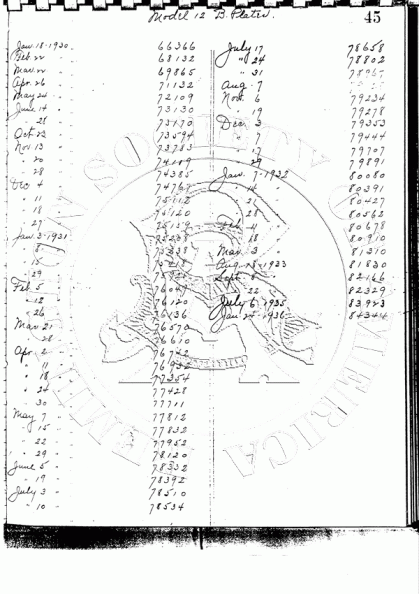 Model 12 B. Plates.
45
Jan. 18-1930. 66366
Feb. 22 " 68132
Mar. 22 " 69865
Apr. 26 " 71132
May 24 " 72109
June 14 " 73130
" 28 " 73170
Oct. 23 " 73594
Nov. 13 " 73783
" 20 " 74119
" 28 " 74385
Dec. 4 " 74767
" 11 " 75112
" 18 " 75120
" 27 " 75159
Jan. 3-1931 75238
" 8 "
" 15 "
" 29 "
Feb. 5 " 76049
" 12 " 76120
" 26 " 76136
Mar. 21 " 76570
" 28 " 76610
Apr. 2 " 76742
" 11 " 76932
" 18 " 77354
" 24 " 77428
" 30 " 77711
May 7 " 77812
" 15 " 77832
" 22 " 77952
" 29 " 78120
June 5 " 78332
" 19 " 78392
July 3 " 78510
" 10 " 78534
July 17 78658
" 24 78802
" 31
Aug. 7
Nov. 6 79234
" 19 79278
Dec. 3 79353
" 7 79444
" 17 79707
" 29 79891
Jan. 7-1932 80080
" 14 " 80391
" 2 80427
" 28 80562
Feb. 4 80678
" 18 80910
Mar. 3 81310
Aug. 18-1933 81830
Sept. 8 " 82166
" 22 82329
July 6-1935 83923
Jan. 25-1936 84344
EMBLEM SOCIETY OF AMERICA